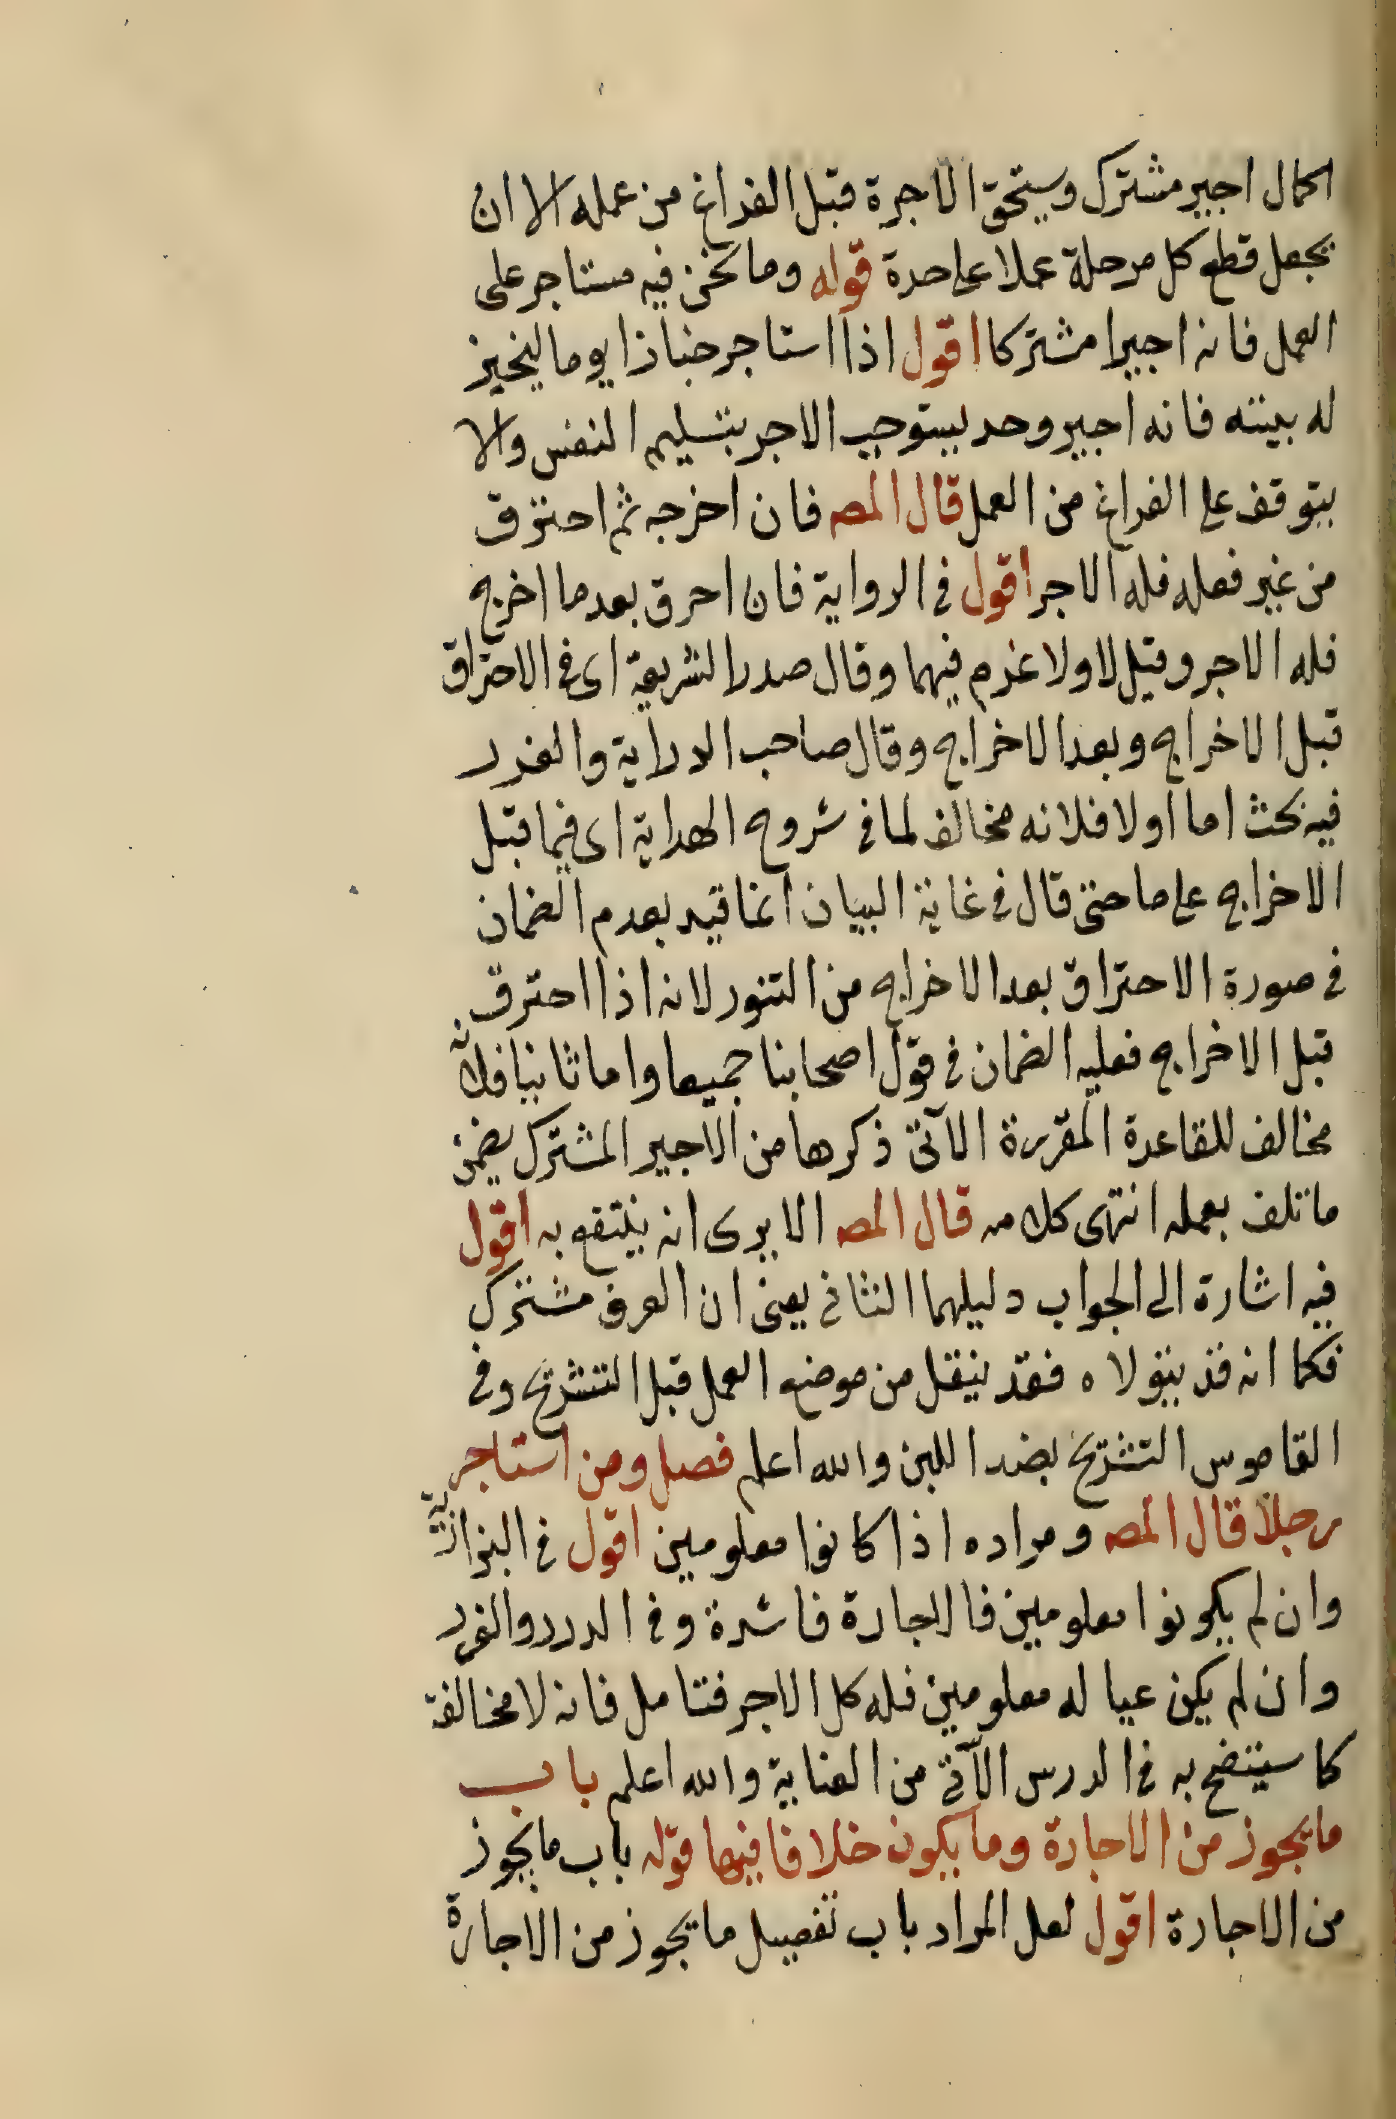 الحمال اجير مشترك ويستحق الاجرة قبل الفراغ من عمله الا ان
يجعل قطع كل مرحلة عملا على حدة قوله وما نحن فيه مستاجر على
العمل فانه اجيرا مشتركا اقول اذا استاجر خبازا يوما ليخبز
له بيته فانه اجير وحد يستوجب الاجر بتسليم النفس ولا
يتوقف على الفراغ من العمل قال المصـ فان اخرجه ثم احترق
من غير فعله فله الاجر اقول في الرواية فان احرق بعد ما اخرج
فله الاجر وقبل لا ولا غرم فيهما وقال صدر الشريعة اى في الاحتراق
قبل الاخراج وبعد الاخراج وقال صاحب الدراية والغرر
فيه بحث اما اولا فلانه مخالف لما في شروح الهداية اى فيما قبل
الاخراج على ما حتى قال في غاية البيان انما قيد بعدم الضمان
في صورة الاحتراق بعد الاخراج من التنور لانه اذا احترق
قبل الاخراج فعليه الضمان في قول اصحابنا جميعا واما ثانيا فلانه
مخالف للقاعدة المقررة الآتى ذكرها من الاجير المشترك يضمن
ما تلف بعمله انتهى كلامه قال المصـ الا يرى انه ينتفع به اقول
فيه اشارة الى الجواب دليلهما الثاني يعنى ان العرف مشترك
فكما انه قد يتولاه فقد ينقل من موضع العمل قبل التشريج وفي
القاموس التشريج بضد اللبن والله اعلم فصل ومن استاجر
رجلا قال المصـ ومراده اذا كانوا معلومين اقول في البزازية
وان لم يكونوا معلومين فالاجارة فاسدة وفي الدرر والغرر
وان لم يكن عياله معلومين فله كل الاجر فتامل فانه لا مخالفة
كما سيتضح به في الدرس الآتي من العناية والله اعلم باب
ما يجوز من الاجارة وما يكون خلافا فيها قوله باب ما يجوز
من الاجارة اقول لعل المراد باب تفصيل ما يجوز من الاجارة